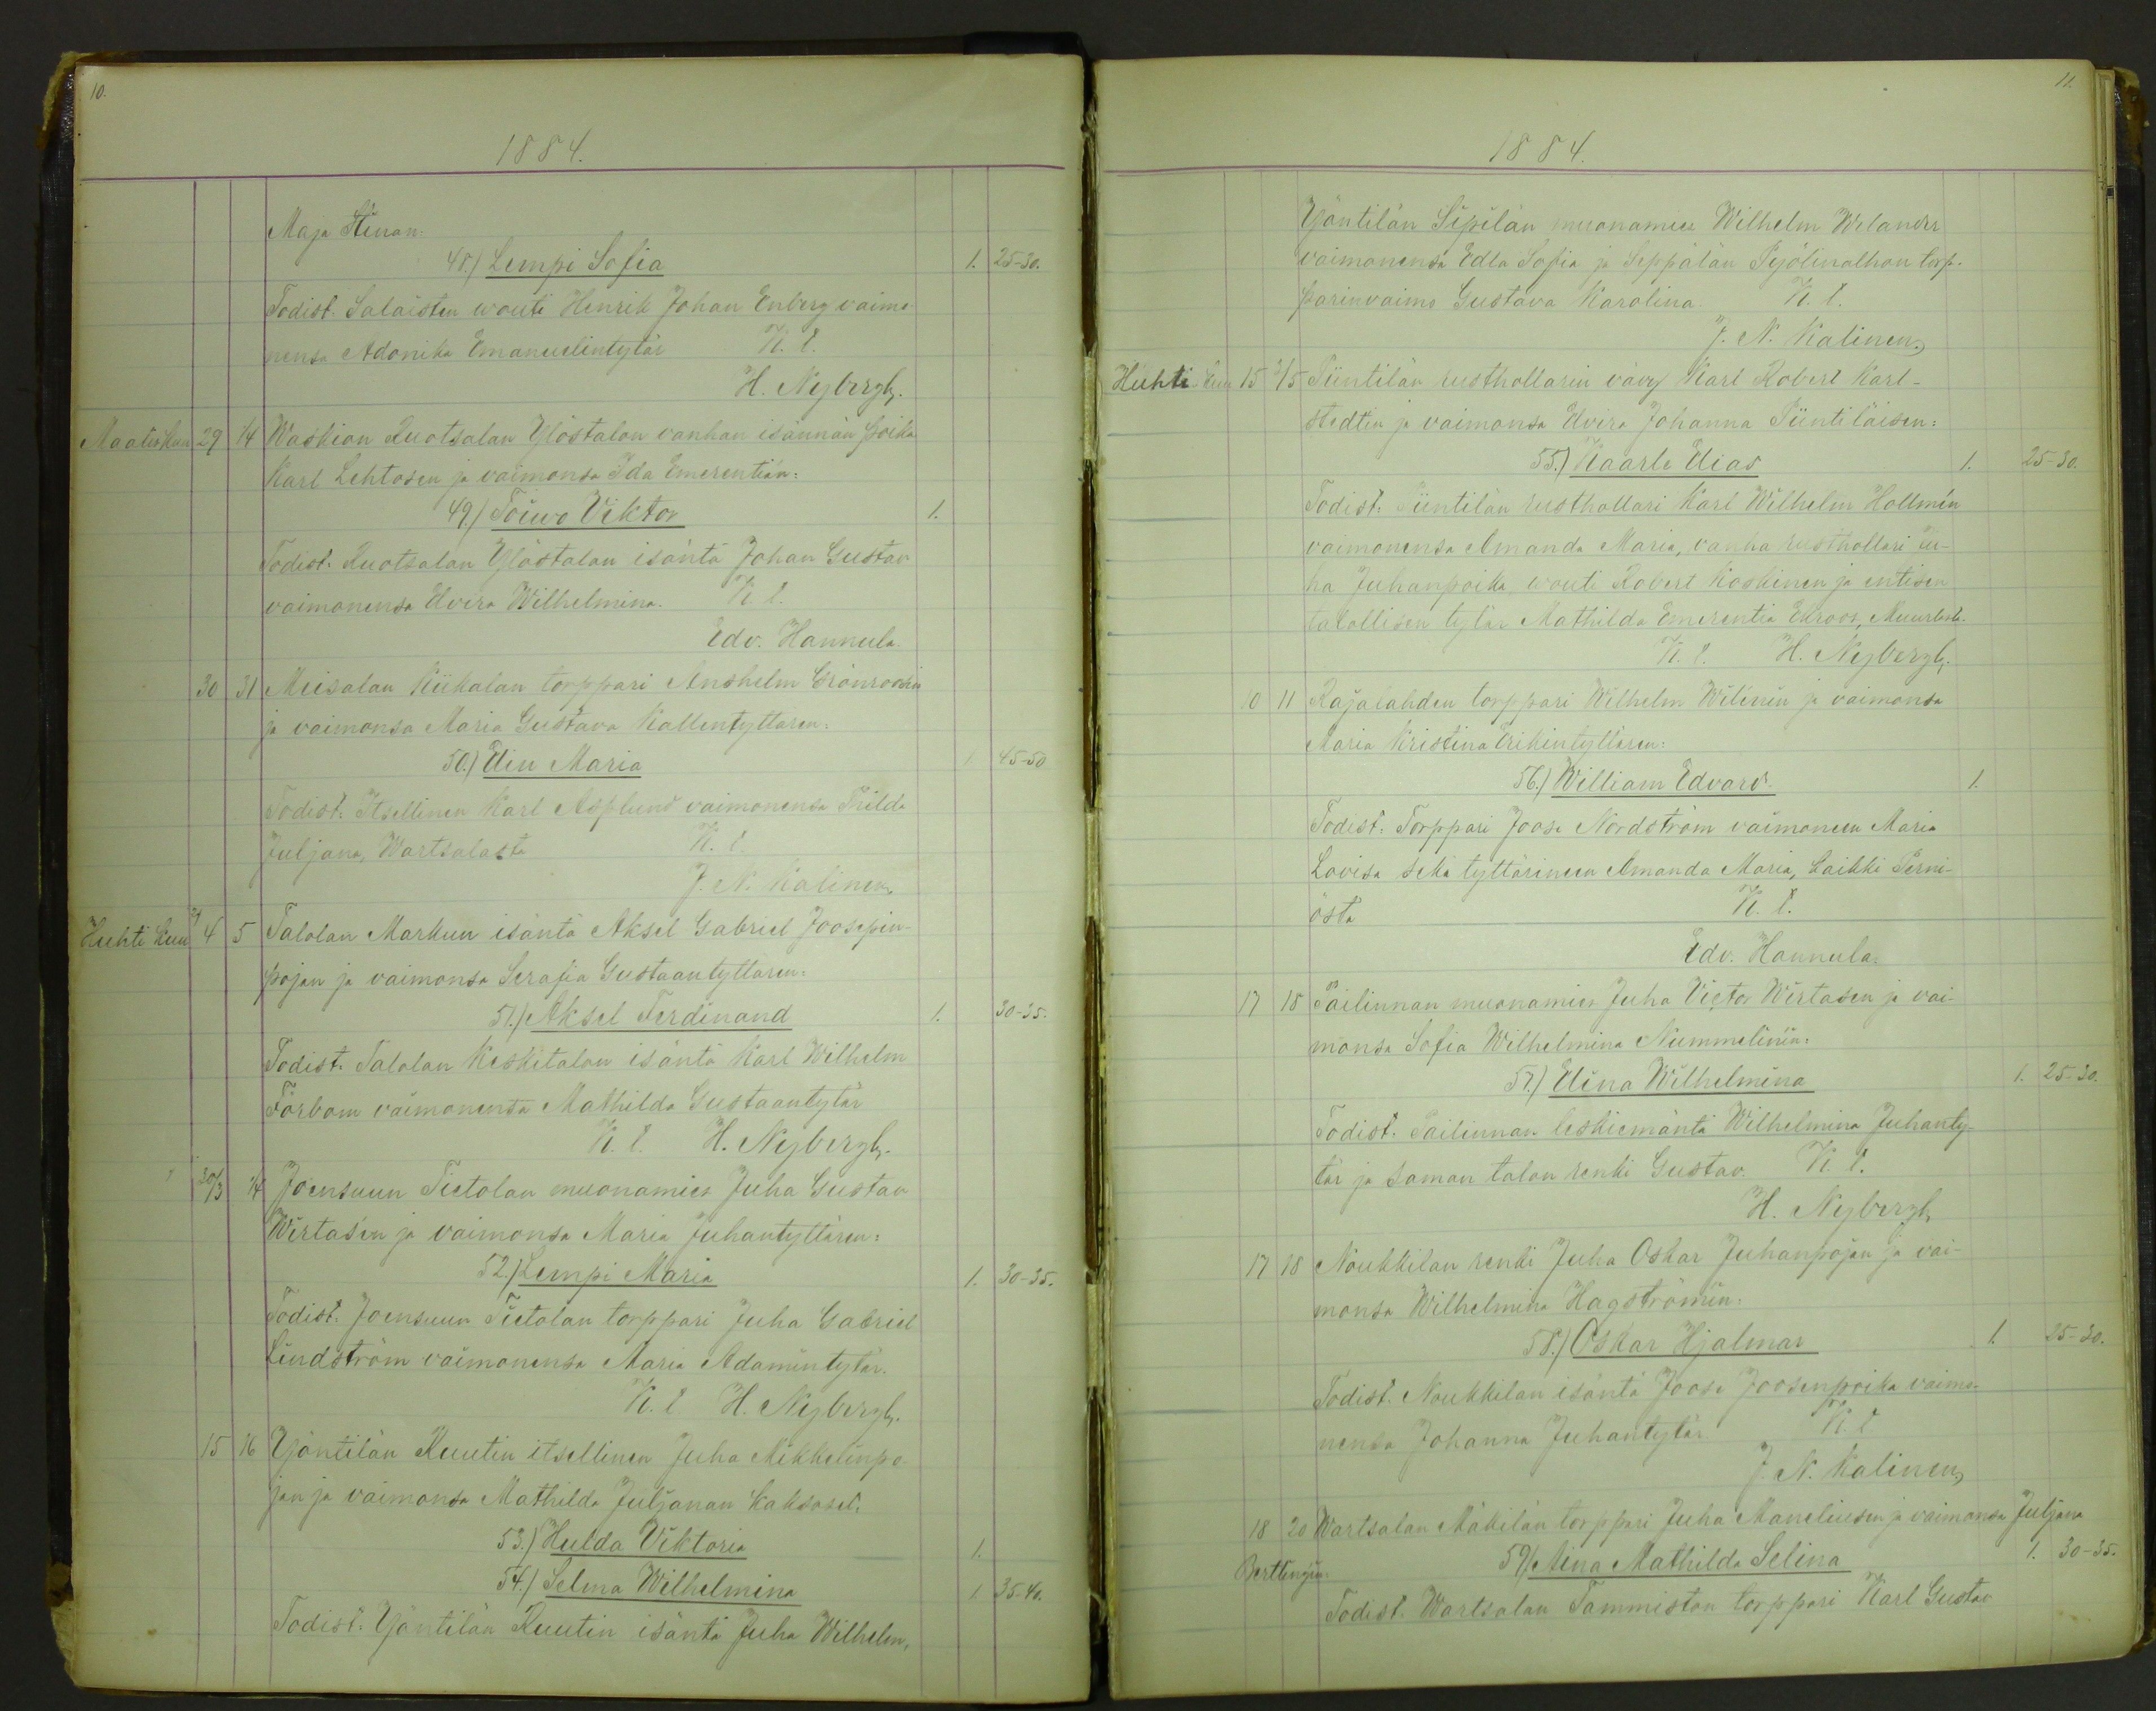 10.
1884.
Maja Stinan:
48.) Lempi Sofia 1. 25-30.
Todist. Salaisten wouti Henrik Johan Enberg vaimo-
nensa Adonika Emanuelintytär K. l.
H. Nybergh.
Maaliskuu 29 1/4 Waskion Ruotsalan Ylöstalon vanhan isännän poika
Karl Lehtosen ja vaimonsa Ida Emerentian:
49.) Toiwo Viktor 1.
Todist. Ruotsalan Ylöstalon isäntä Johan Gustav
vaimonensa Elvira Wilhelmina. K. l.
Edv. Hannula.
30 31 Meisalan Kiikalan torppari Anshelm Grönroosin
ja vaimonsa Maria Gustava Kallentyttären:
50.) Elin Maria 1. 45-50
Todist. Itsellinen Karl Asplund vaimonensa Thilda
Juljana, Wartsalasta K. l.
J. N. Kalinen.
Huhti kuu 4 5 Talolan Markun isäntä Aksel Gabriel Joosepin-
pojan ja vaimonsa Serafia Gustaantyttären:
51.) Aksel Ferdinand 1. 30-35.
Todist. Talolan Keskitalon isäntä Karl Wilhelm
Forbom vaimonensa Mathilda Gustaantytär
K. l. H. Nybergh.
30/3 1/4 Joensuun Tietolan muonamies Juha Gustav
Wirtasen ja vaimonsa Maria Juhantyttären:
52.) Lempi Maria 1. 30-35.
Todist. Joensuun Tietolan torppari Juha Gabriel
Lindström vaimonensa Maria Adamintytär.
K. l H. Nybergh.
15 16 Yöntilän Ruutin itsellinen Juha Mikkelinpo-
jan ja vaimonsa Mathilda Juljanan kaksoset:
53.) Hulda Viktoria 1.
54.) Selma Wilhelmina 1 35-40.
Todist. Yöntilän Ruutin isäntä Juha Wilhelm,
11.
1884.
Yöntilän Sipilän muonamies Wilhelm Welander
vaimonensa Edla Sofia ja Seppälän torp-
parinvaimo Gustava Karolina. K. l.
J. N. Kalinen.
Huhti-kuu 15 Tiintilän rusthollarin vävy Karl Robert Karl-
stedtin ja vaimonsa Elvira Johanna Tiintiläisen:
55.) Kaarle Elias 1. 25-30.
Todist. Tiintilän rusthollari Karl Wilhelm Hollmén
vaimonensa Amanda Maria, vanha rusthollari Ju-
ha Juhanpoika, wouti Robert Koskinen ja entisen
talollisen tytär Mathilda Emerentia Ekroos, Muurlasta.
K. l. H. Nybergh.
10 11 Rajalahden torppari Wilhelm Wilinin ja vaimonsa
Maria Kristina Erikintyttären:
56.) William Edvard. 1.
Todist. Torppari Joose Nordström vaimoneen Maria
Lovisa sekä tyttärineen Amanda Maria, kaikki Perni-
östä K. l.
Edv. Hannula.
17 18 Pailinnan muonamies Juha Victor Wirtasen ja vai-
monsa Sofia Wilhelmina Nummelinin:
57.) Elina Wilhelmina 1. 25-30.
Todist. Pailinnan leskiemäntä Wilhelmina Juhanty-
tär ja saman talon renki Gustav. K. l.
H. Nybergh.
17 18 Noukkilan renki Juha Oskar Juhanpojan ja vai-
monsa Wilhelmina Hagströmin:
58.) Oskar Hjalmar 1. 25-30.
Todist. Noukkilan isäntä Joose Joosenpoika vaimo-
nensa Johanna Juhantytär K. l
J. N. Kalinen.
18 20 Wartsalan Mäkilän torppari Juha Maneliusen ja vaimonsa Juljana
Bertlingin: 59.) Aina Mathilda Selina 1. 30-35.
Todist. Wartsalan Tammiston torppari Karl Gustav